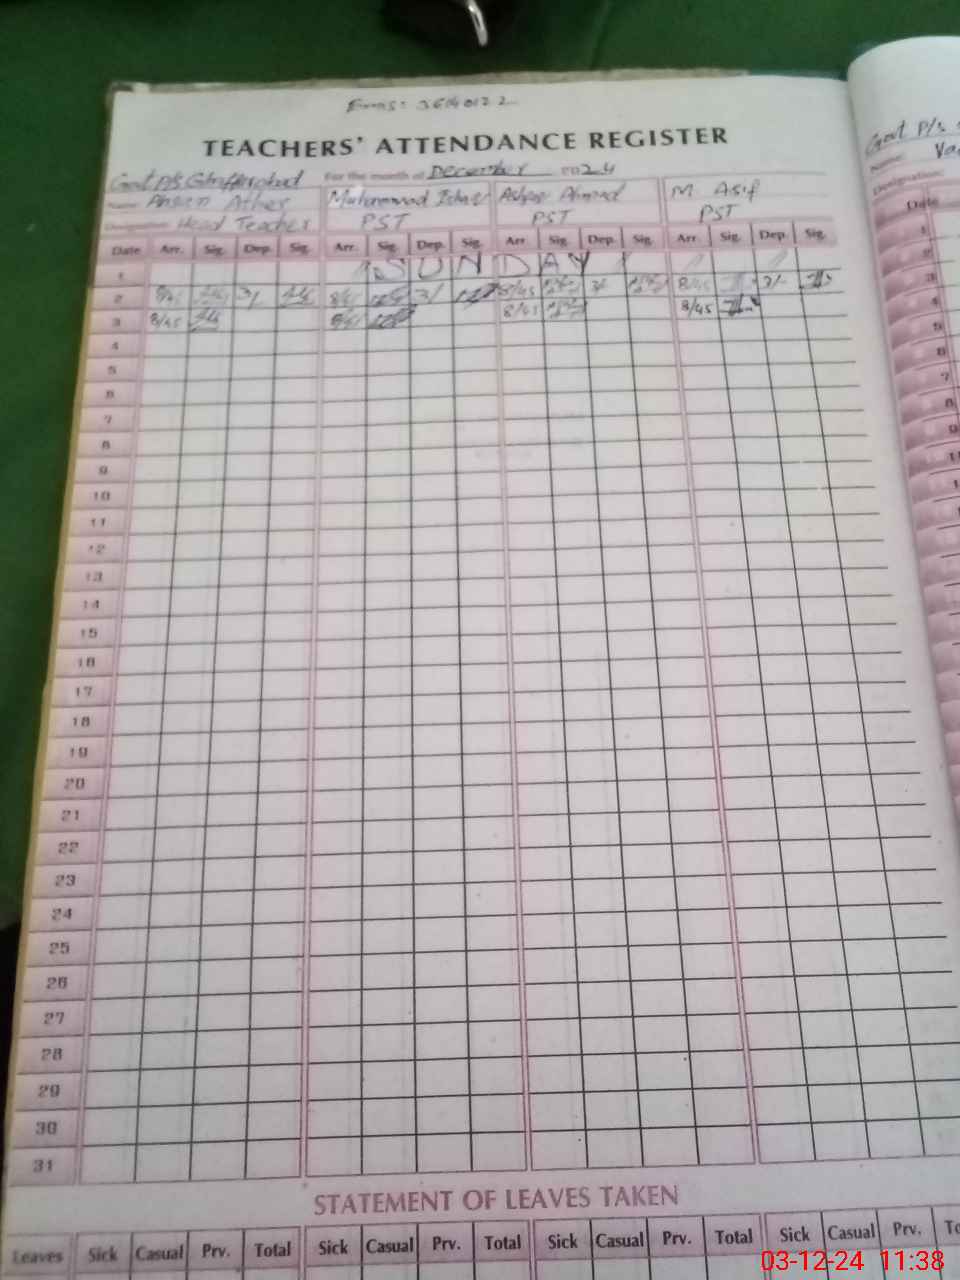 Emis: 36140122
TEACHERS' ATTENDANCE REGISTER
Govt P/s For the month of December 2024
Name: Ahsan Ather Muhammad Ashfaq Ahmad M. Asif
Designation: Head Teacher PST PST PST
Date Arr. Sig. Dep. Sig. Arr. Sig. Dep. Sig. Arr. Sig. Dep. Sig. Arr. Sig. Dep. Sig.
1 SUNDAY
2 8/45 3/ 8/45 3/ 8/45 3/ 8/45 3/-
3 8/45 8/45 8/45 8/45
4
5
6
7
8
9
10
11
12
13
14
15
16
17
18
19
20
21
22
23
24
25
26
27
28
29
30
31
STATEMENT OF LEAVES TAKEN
Leaves Sick Casual Prv. Total Sick Casual Prv. Total Sick Casual Prv. Total Sick Casual Prv.
Govt P/s
Name:
Designation:
Date
1
2
3
5
6
7
8
9
03-12-24 11:38